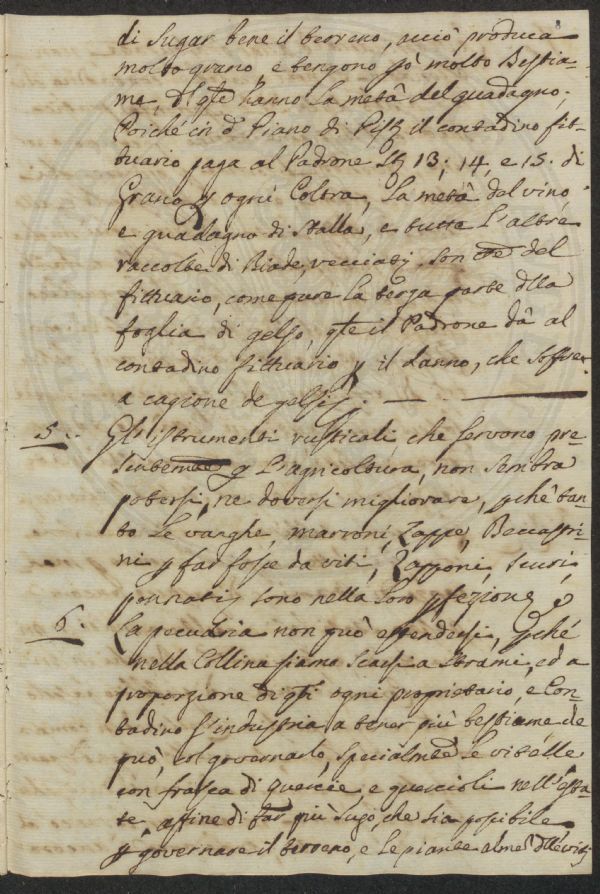 8
di sugar bene il terreno, acciò produca
molto grano, e tengono p̱ò molto Bestia-
me, d'q̱te hanno la metà del guadagno;
Poiché in d.º Piano di il contadino fit-
tuario paga al Padrone 13; 14, e 15. di
Grano p̱ ogni Coltra, la metà del vino
e guadagno di stalla, e tutte l'altre
raccolte di Biade, vecciati, son del
fittuario, come pure la terza parte dlla
foglia di gelso, q̱te il Padrone dà al
contadino fittuario p̱ il danno, che soffre
a cagione de gelsi.
5.. Gl'istrumenti rusticali, che servono pre-
sentemte p̱ l'agricoltura, non sembra
potersi, ne doversi migliorare, p̱chè tan-
to le vanghe, marroni, Zappe, Beccastri-
ni p̱ far fosse da viti, Zapponi, scuri,
pennati, sono nella loro p̱fezione
6. La pecuaria non può estendersi, p̱ché
nella Collina siamo scarsi a strami, ed a
proporzione di q̱ti ogni proprietario, e Con-
tadino s'industria a tener più bestiame, che
può, col governarlo, specialmte le vitelle
con frasca di quercie e querciol nell'esta-
te affine di far più sugo, che sia possibile
p̱ governare il terreno, e le piante almeº dlle viti